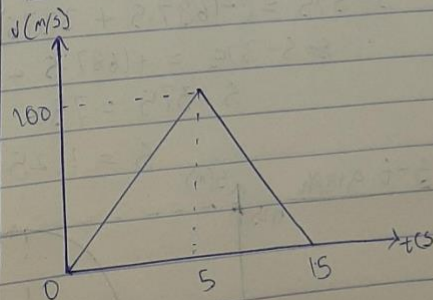 v(m/s)
100
0
5
15
t(s